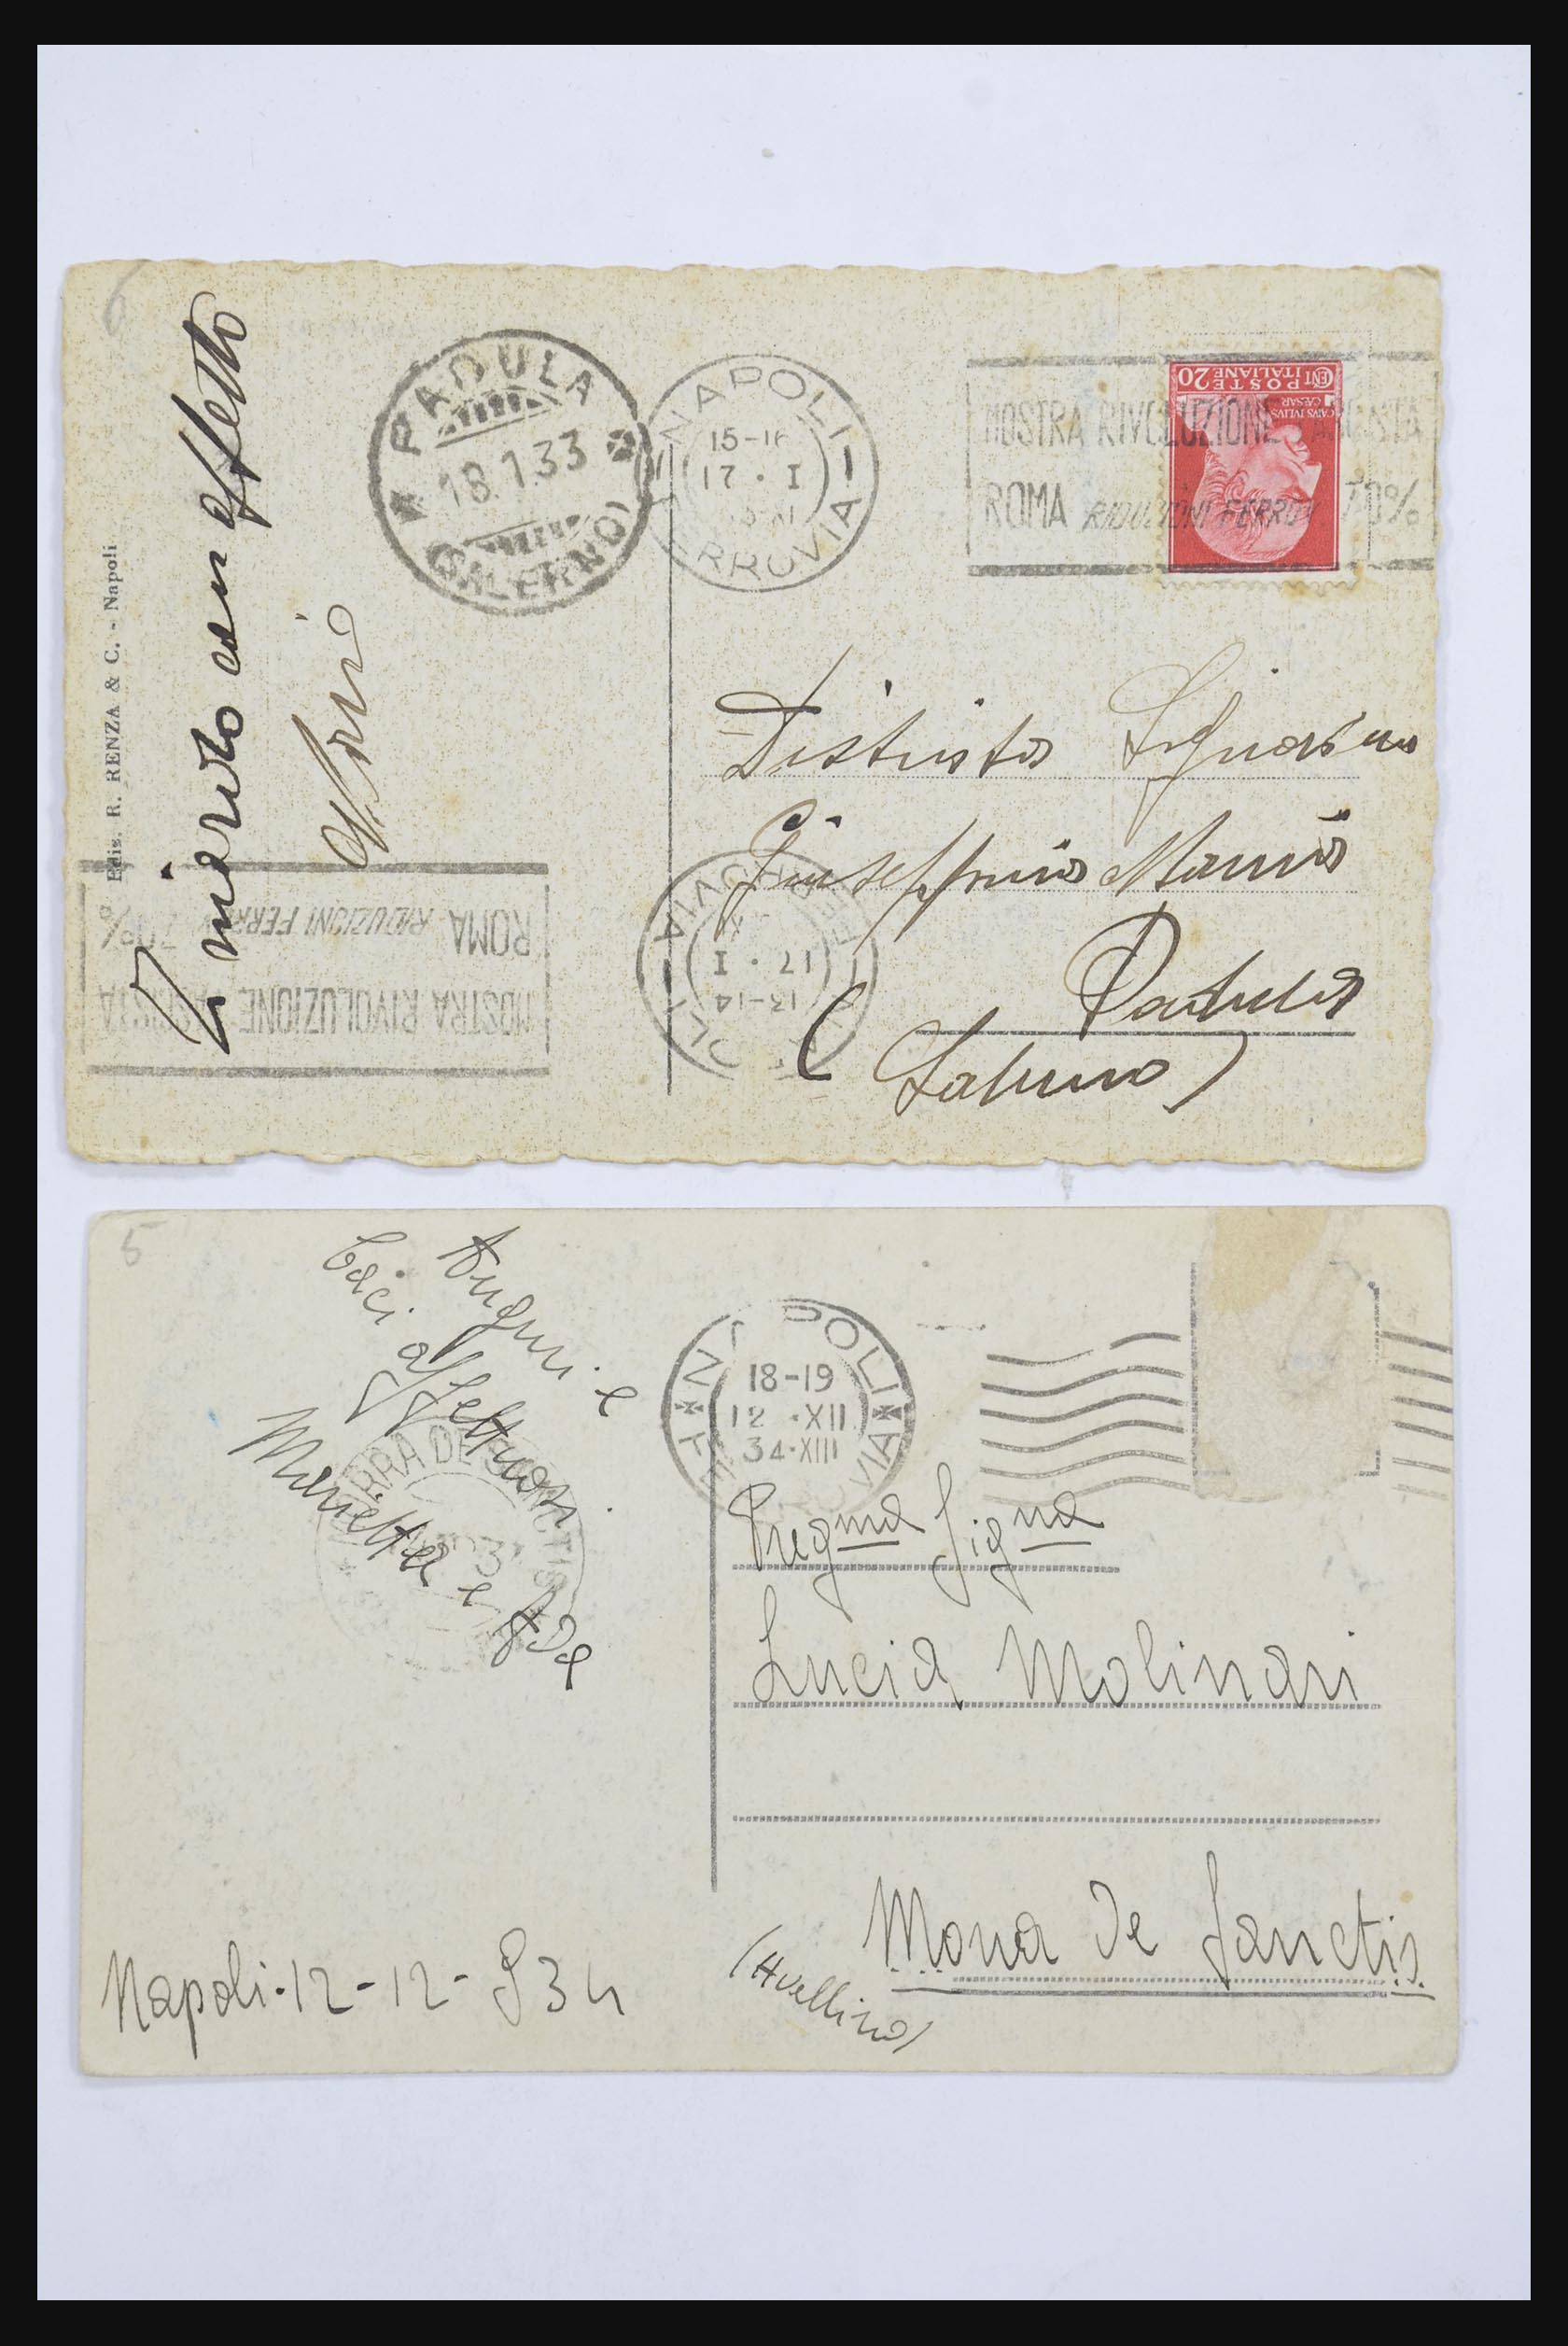 6
Ti rivedo con affetto
Ediz. R. RENZA & C. - Napoli
PADULA
18.1.33
(SALERNO)
NAPOLI
15-16
17 · I
FERROVIA
MOSTRA RIVOLUZIONE FASCISTA
ROMA RIDUZIONI FERROV 70%
CENT 20
POSTE
ITALIANE
CAIVS IVLIVS
CAESAR
Distinta Signorina
Giuseppina
Padula
(Salerno)
NAPOLI
13-14
17 · I
FERROVIA
MOSTRA RIVOLUZIONE FASCISTA
ROMA RIDUZIONI FERROV 70%
5
Auguri e
baci affettuosi
Marietta e Ada
MORRA DE SANCTIS
NAPOLI
18-19
12 · XII
34·XIII
FERROVIA
Pregma Signa
Lucia Molinari
Morra De Sanctis
(Avellino)
Napoli-12-12-934